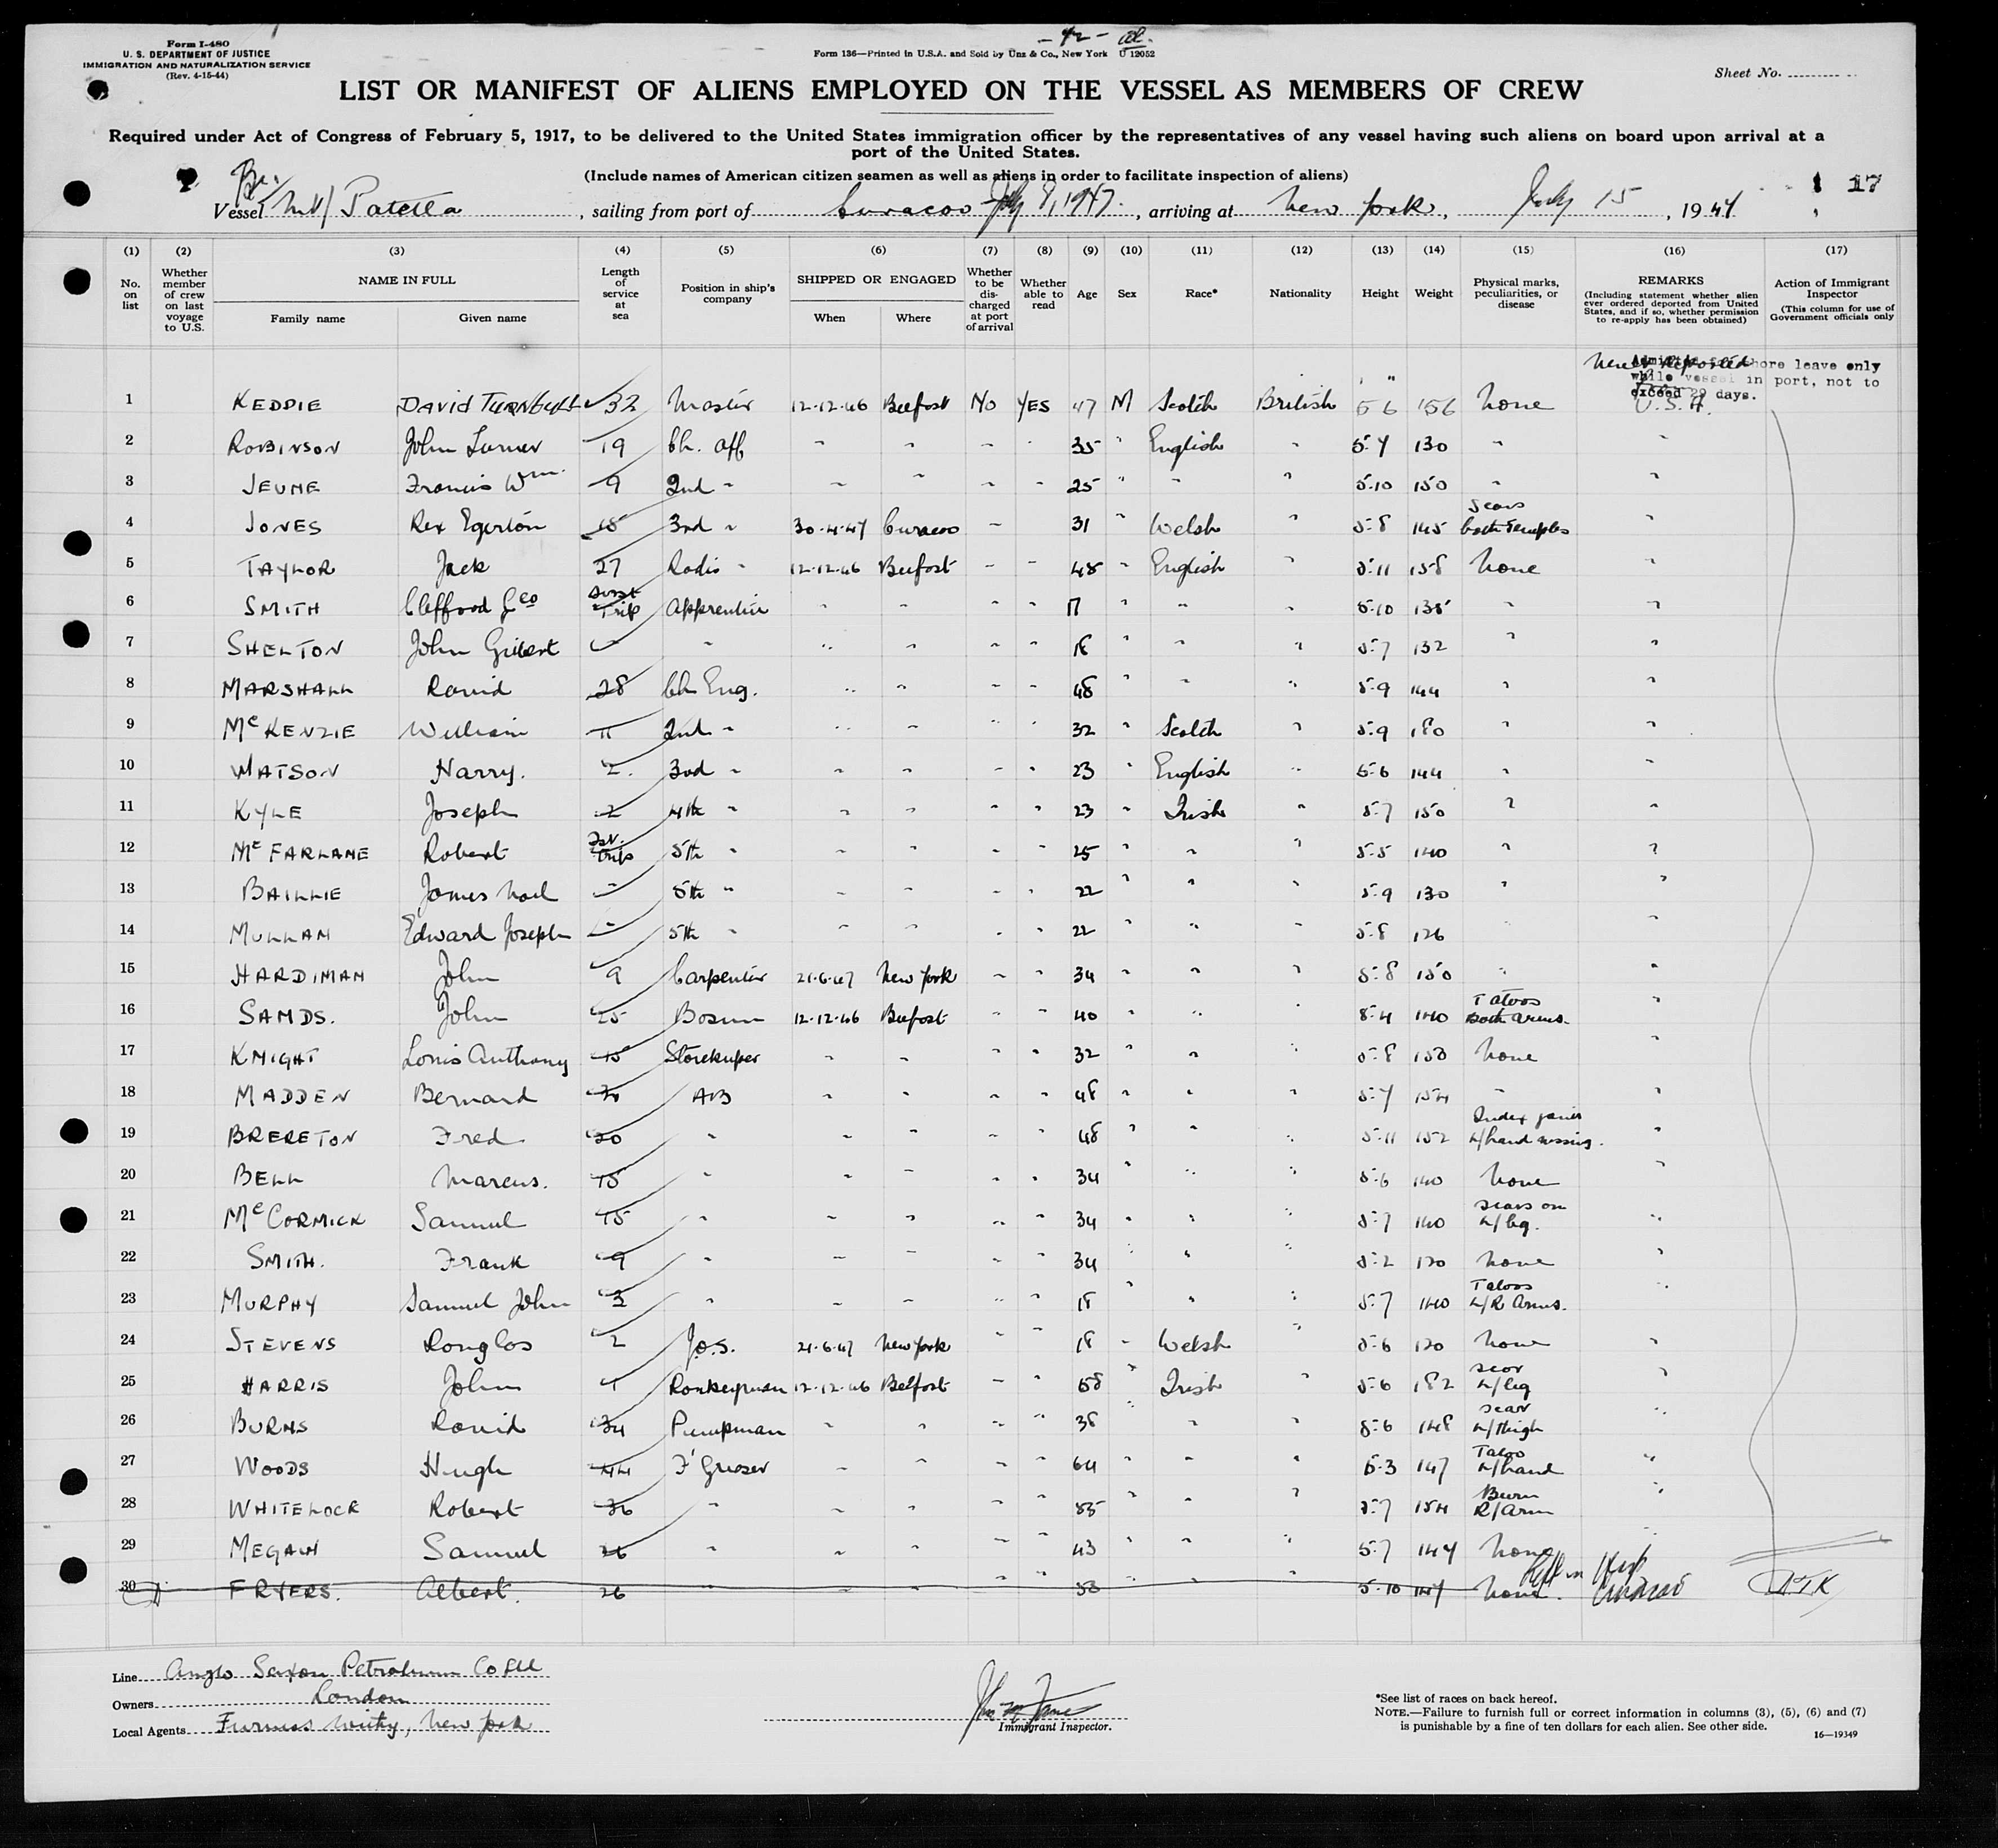 Form I-480
U. S. DEPARTMENT OF JUSTICE
IMMIGRATION AND NATURALIZATION SERVICE
(Rev. 4-15-44)
Form 136—Printed in U.S.A. and Sold by Unz & Co., New York U 12052
Sheet No.
LIST OR MANIFEST OF ALIENS EMPLOYED ON THE VESSEL AS MEMBERS OF CREW
Required under Act of Congress of February 5, 1917, to be delivered to the United States immigration officer by the representatives of any vessel having such aliens on board upon arrival at a
port of the United States.
(Include names of American citizen seamen as well as aliens in order to facilitate inspection of aliens)
Br.
Vessel M/V Patella, sailing from port of Curacao July 8, 1947., arriving at New York, July 15, 1947 17
(1) (2) (3) (4) (5) (6) (7) (8) (9) (10) (11) (12) (13) (14) (15) (16) (17)
No. on list
Whether member of crew on last voyage to U.S.
NAME IN FULL
Family name Given name
Length of service at sea
Position in ship's company
SHIPPED OR ENGAGED
When Where
Whether to be discharged at port of arrival
Whether able to read
Age
Sex
Race*
Nationality
Height
Weight
Physical marks, peculiarities, or disease
REMARKS
(Including statement whether alien ever ordered deported from United States, and if so, whether permission to re-apply has been obtained)
Action of Immigrant Inspector
(This column for use of Government officials only
Never deported
Admitted shore leave only
while vessel in port, not to
exceed 29 days.
U.S.A.
1 KEDDIE DAVID TURNBULL 32 Master 12-12-46 Belfast NO YES 47 M Scotch British 5 6 156 None
2 ROBINSON John Turner 19 Ch. Off " " " " 35 " English " 5-7 130 " "
3 JEUNE Francis Wm. 9 2nd " " " " " 25 " " " 5-10 150 " "
4 JONES Rex Egerton 15 3rd " 30-4-47 Curacao " 31 " Welsh " 5-8 145 Scars both temples "
5 TAYLOR Jack 27 Radio " 12-12-46 Belfast " " 45 " English " 5-11 158 None "
6 SMITH Clifford Geo First Trip Apprentice " " " " 17 " " " 5-10 135 " "
7 SHELTON John Gilbert " " " " " " 18 " " " 5-7 132 " "
8 MARSHALL David 28 Ch Eng. " " " " 48 " " " 5-9 144 " "
9 McKENZIE William 11 2nd " " " " " 32 " Scotch " 5-9 180 " "
10 WATSON Harry. 2. 3rd " " " " " 23 " English " 5-6 144 " "
11 KYLE Joseph 2 4th " " " " " 23 " Irish " 5-7 150 " "
12 McFARLANE Robert 1st. trip 5th " " " " " 25 " " " 5-5 140 " "
13 BAILLIE James Noel " 5th " " " " " 22 " " " 5-9 130 " "
14 MULLAN Edward Joseph " 5th " " " " " 22 " " " 5-8 126 "
15 HARDIMAN John 9 Carpenter 21-6-47 New York " " 34 " " " 5-8 150 " "
16 SANDS. John 25 Bosun 12-12-46 Belfast " " 40 " " " 5-4 140 Tatoos both arms. "
17 KNIGHT Louis Anthony 15 Storekeeper " " " " 32 " " " 5-8 150 None "
18 MADDEN Bernard 30 AB " " " " 48 " " " 5-7 154 " "
19 BRERETON Fred 30 " " " " " 48 " " " 5-11 152 Index L/hand missing. "
20 BELL Marcus. 15 " " " " " 34 " " " 5-6 140 None "
21 McCORMICK Samuel 15 " " " " " 34 " " " 5-7 140 Scars on L/leg. "
22 SMITH. Frank 9 " " " " " 34 " " " 5-2 120 None "
23 MURPHY Samuel John 3 " " " " " 18 " " " 5-7 140 Tatoos L/R Arms. "
24 STEVENS Douglas 2 J.O.S. 21-6-47 New York " " 18 " Welsh " 5-6 120 None "
25 HARRIS John 1 Donkeyman 12-12-46 Belfast " " 58 " Irish " 5-6 182 Scar L/leg "
26 BURNS David 34 Pumpman " " " " 38 " " " 5-6 148 Scar L/thigh "
27 WOODS Hugh 44 F'Greaser " " " " 64 " " " 5-3 147 Tatoo L/hand "
28 WHITELOCK Robert 36 " " " " " 55 " " " 5-7 154 Burn R/Arm "
29 MEGAW Samuel 26 " " " " " 43 " " " 5-7 147 None "
30 FRYERS. Albert. 26 " " " " " 53 " " " 5-10 147 None. Left in Hosp Curacao
Line Anglo Saxon Petroleum Co Ltd
Owners London
Local Agents Furness Withy, New York
Immigrant Inspector.
*See list of races on back hereof.
NOTE.—Failure to furnish full or correct information in columns (3), (5), (6) and (7)
is punishable by a fine of ten dollars for each alien. See other side.
16—19349